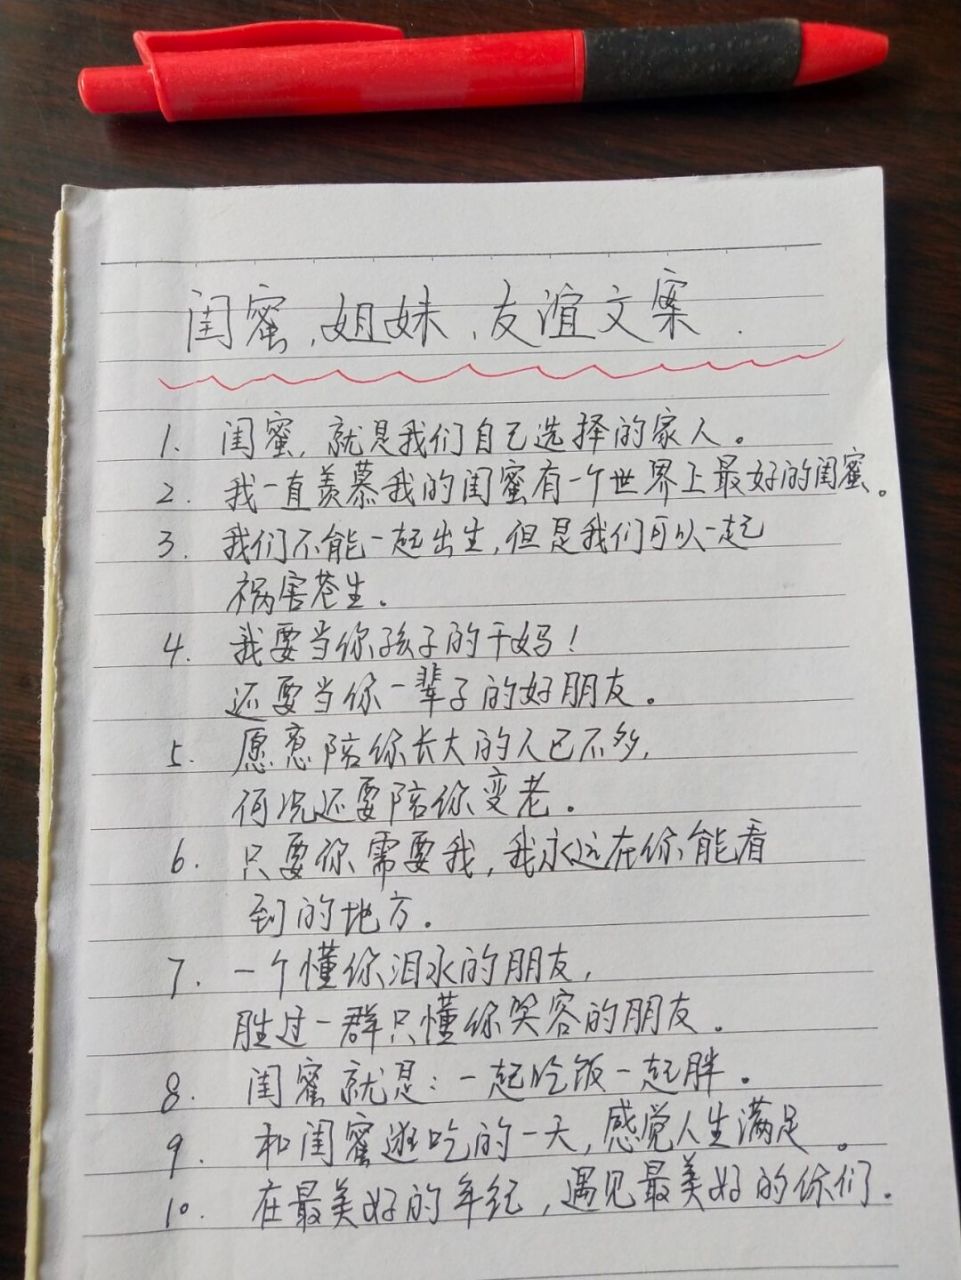 闺蜜、姐妹、友谊文案.
1. 闺蜜，就是我们自己选择的家人。
2. 我一直羡慕我的闺蜜有一个世界上最好的闺蜜。
3. 我们不能一起出生，但是我们可以一起
祸害苍生。
4. 我要当你孩子的干妈！
还要当你一辈子的好朋友。
5. 愿意陪你长大的人已不多，
何况还要陪你变老。
6. 只要你需要我，我永远在你能看
到的地方。
7. 一个懂你泪水的朋友，
胜过一群只懂你笑容的朋友。
8. 闺蜜就是：一起吃饭一起胖。
9. 和闺蜜逛吃的一天，感觉人生满足。
10. 在最美好的年纪，遇见最美好的你们。